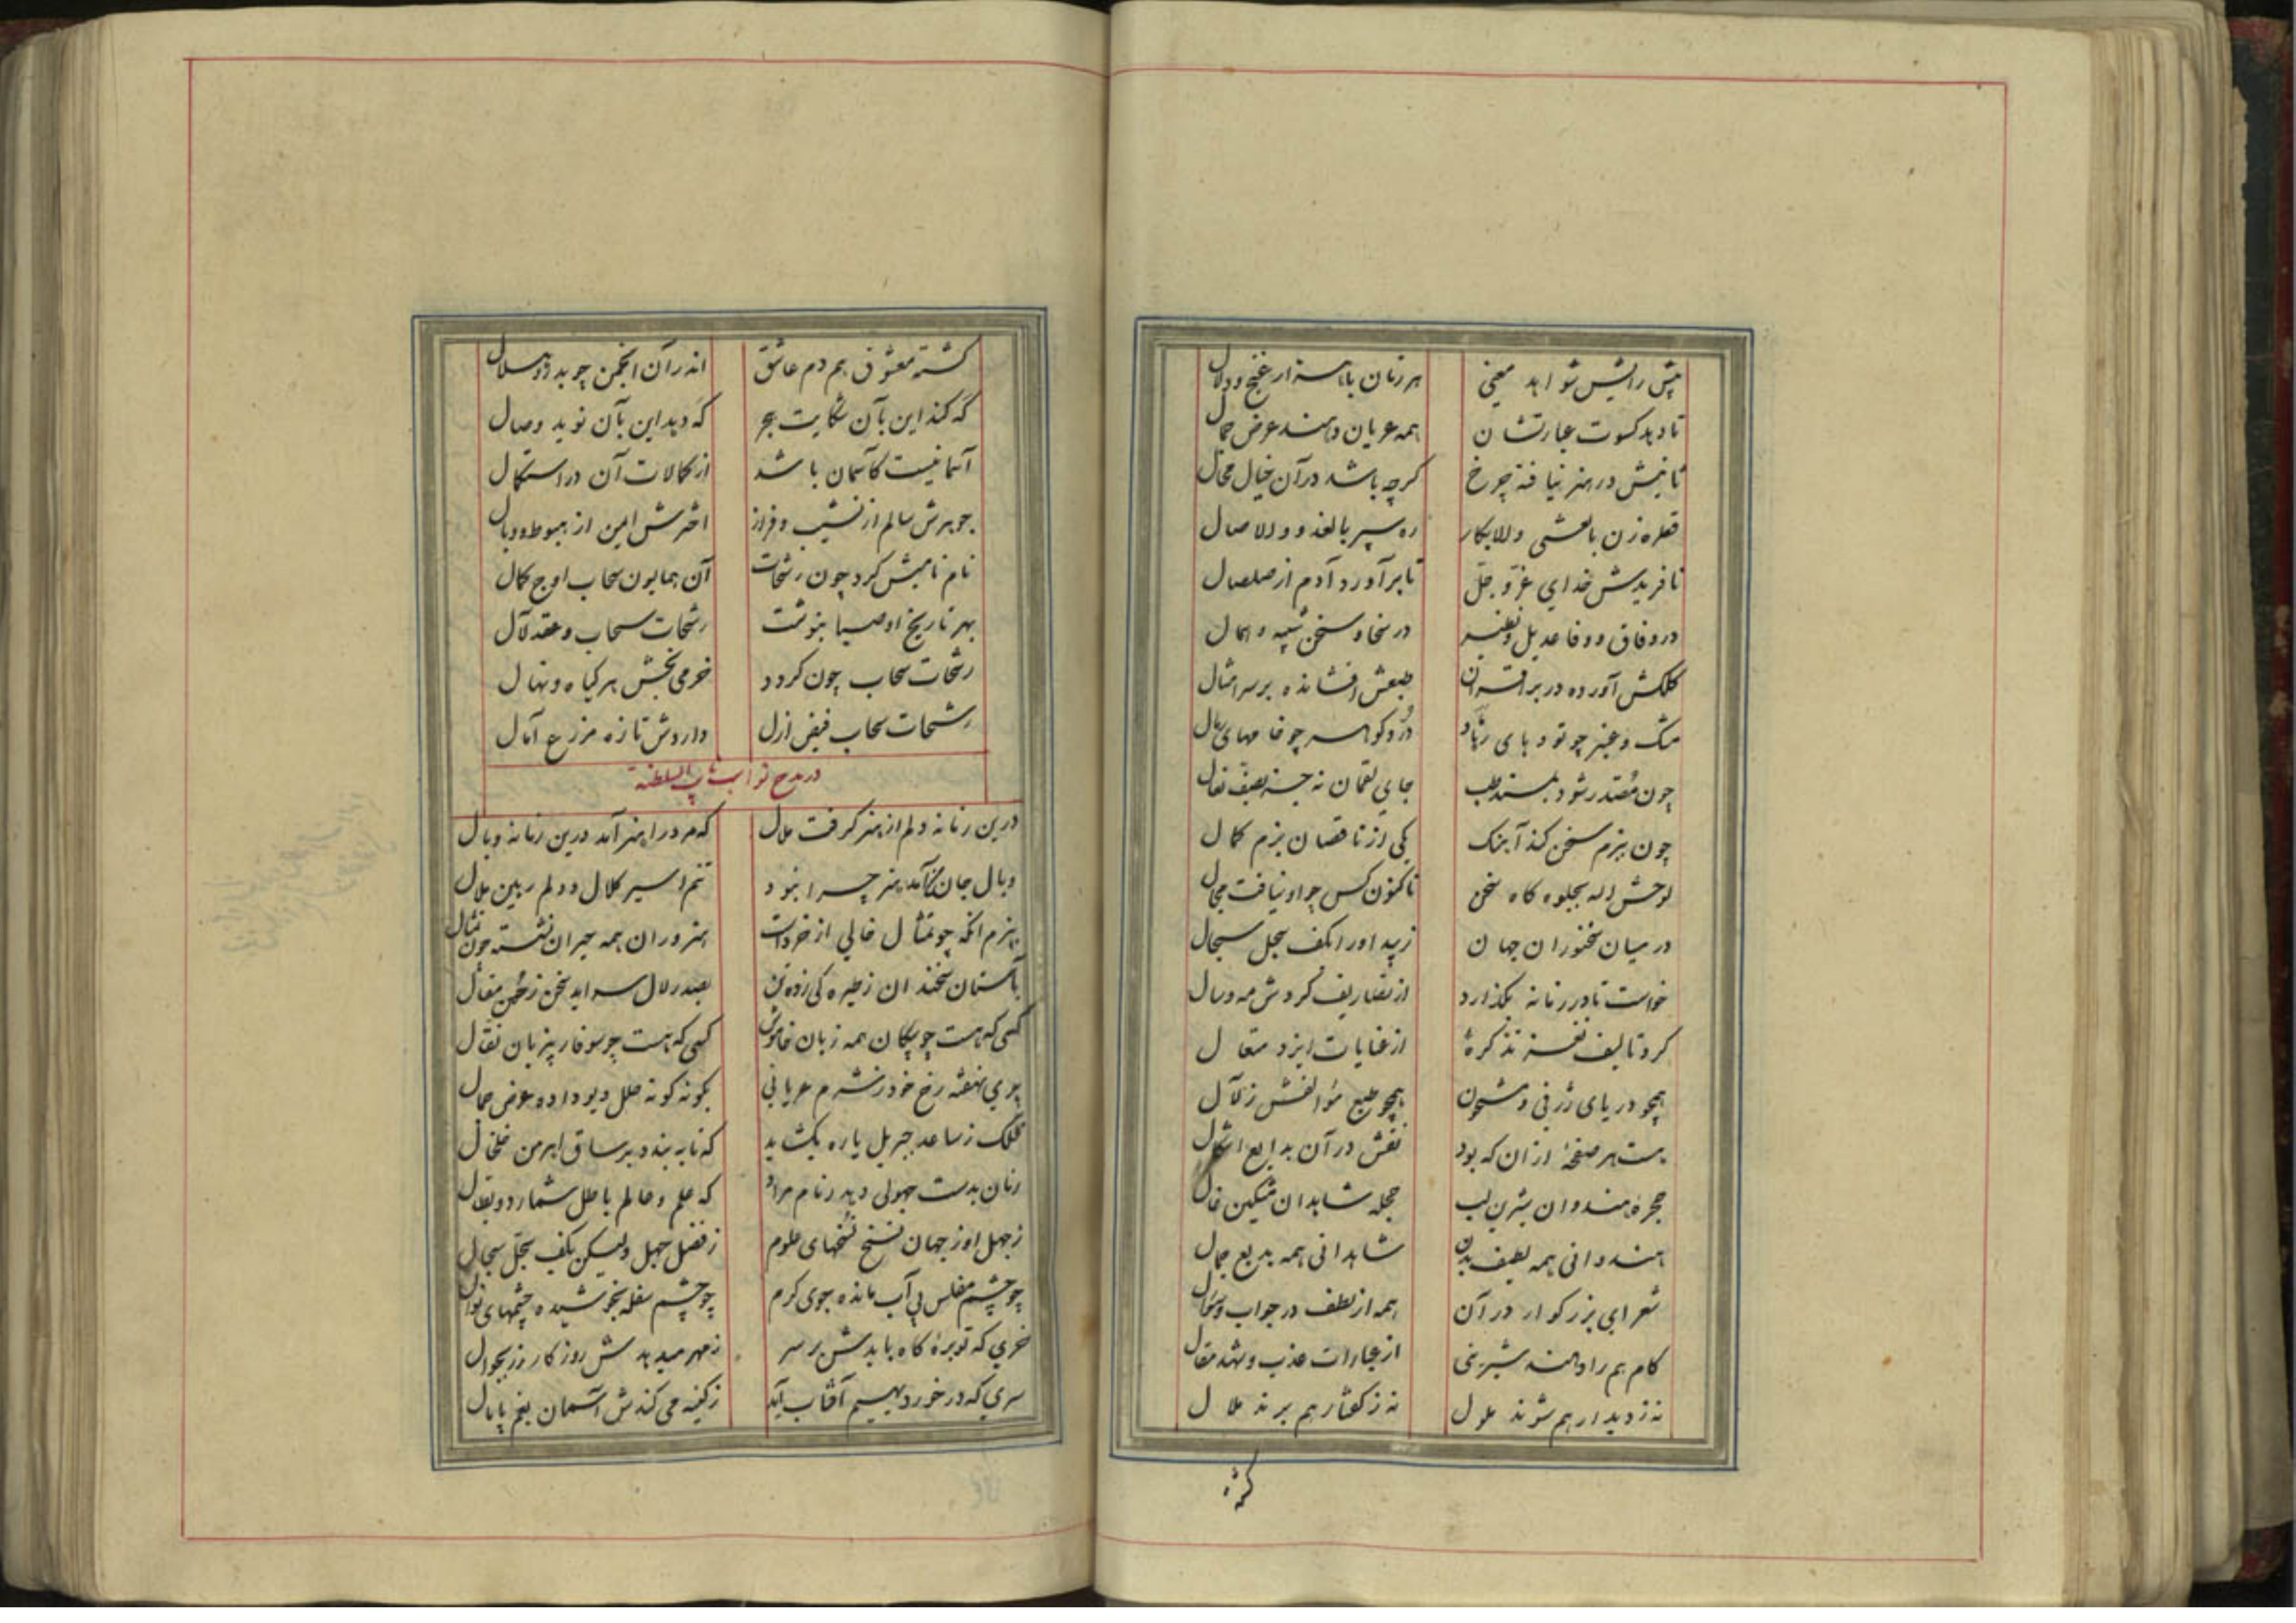 پیش رایش شواهد معنی هر زمان با هزار غنج و دلال
تا دهد کسوت عبارتشان همه عریان دهند عرض جمال
ثانیش در هنر نیافته چرخ گرچه باشد در آن خیال محال
قطره زن بالعشی والابکار ره سپر بالغدو والاصال
نافریدش خدای عز و جل تا برآورد آدم از صلصال
در وفاق و وفا عدیل و نظیر در سخا و سخن شبیه و همال
کلکش آورده در بر اقران طبعش افشانده بر سر امثال
مشک و عنبر چو توده‌ای رماد در و گوهر چو خامهای رمال
چون مقتدر شود بمسند طب جای لقمان نه جسته بصف نعال
چون ببزم سخن کند آهنگ یکی از ناقصان بزم کمال
لوحش الله بجلوه گاه سخن تا کنون کس چو او نیافت مجال
در میان سخنوران جهان زیبد او را بکف سجل سجال
خواست تا در زمانه بگذارد از تصاریف گردش مه و سال
کرد تالیف نغز تذکرهٔ از عنایات ایزد متعال
همچو دریای ژرفی و مشحون همچو طبع مؤلفش ز لآل
هست هر صفحهٔ از آن که بود نقش در آن بدایع اشکال
حجرهٔ هندوان شیرین لب حجله شاهدان مشکین خال
هندوانی همه لطیف بدن شاهدانی همه بدیع جمال
شعرای بزرگوار در آن همه از لطف در جواب و سؤال
کام هم را دهند شیرینی از عبارات عذب و شهد مقال
نه ز دیدار هم شوند ملول نه ز گفتار هم برند ملال
گشته
گشته معشوق هم دم عاشق اندر آن انجمن چو بدر و هلال
که کند این بآن شکایت هجر که دهد این بآن نوید وصال
آسمانیست کآسمان باشد از کمالات آن در استکمال
جوهرش سالم از نشیب و فراز اخترش ایمن از هبوط و وبال
نام نامیش کرد چون رشحات آن همایون سحاب اوج کمال
بهر تاریخ او صبا بنوشت رشحات سحاب و عقد لآل
رشحات سحاب چون گردد خرمی بخش هر گیاه و نهال
رشحات سحاب فیض ازل دارد‌ش تازه مزرع آمال
در مدح نواب نایب السلطنه
درین زمانه دلم از هنر گرفت ملال که مرد را هنر آمد درین زمانه وبال
وبال جان گر آمد هنر چرا نبود تنم اسیر کلال و دلم رهین ملال
ببزم آنکه چو تمثال خالی از خرد است هنروران همه حیران نشسته چون تمثال
بآستان سخندان ز طیره کی زده تن بصدر لال سراید سخن ز حسن مقال
کسی که هست چو پیکان همه زبان خاموش کسی که هست چو سوفار بیزبان نقال
پری نهفته رخ خود ز شرم عریانی بگونه گونه حلل دیو داده عرض جمال
فلک ز ساعد جبریل یاره بگشاید که تا به بندد بر ساق اهرمن خلخال
زمان بدست جهولی دهد زمام مراد که علم و عالم باطل شمارد و بطال
ز جهل او ز جهان نسخ نسخهای علوم ز فضل جهل ولیکن بکف سجل سجال
چو چشم مفلس بی آب مانده جوی کرم چو چشم سفله بخوشیده چشمهای نوال
خری که توبرهٔ کاه بایدش بر سر ز مهر میدهدش روزگار زر بجوال
سری که در خور دیهیم آفتاب آید ز کینه می کندش آسمان بغم پامال